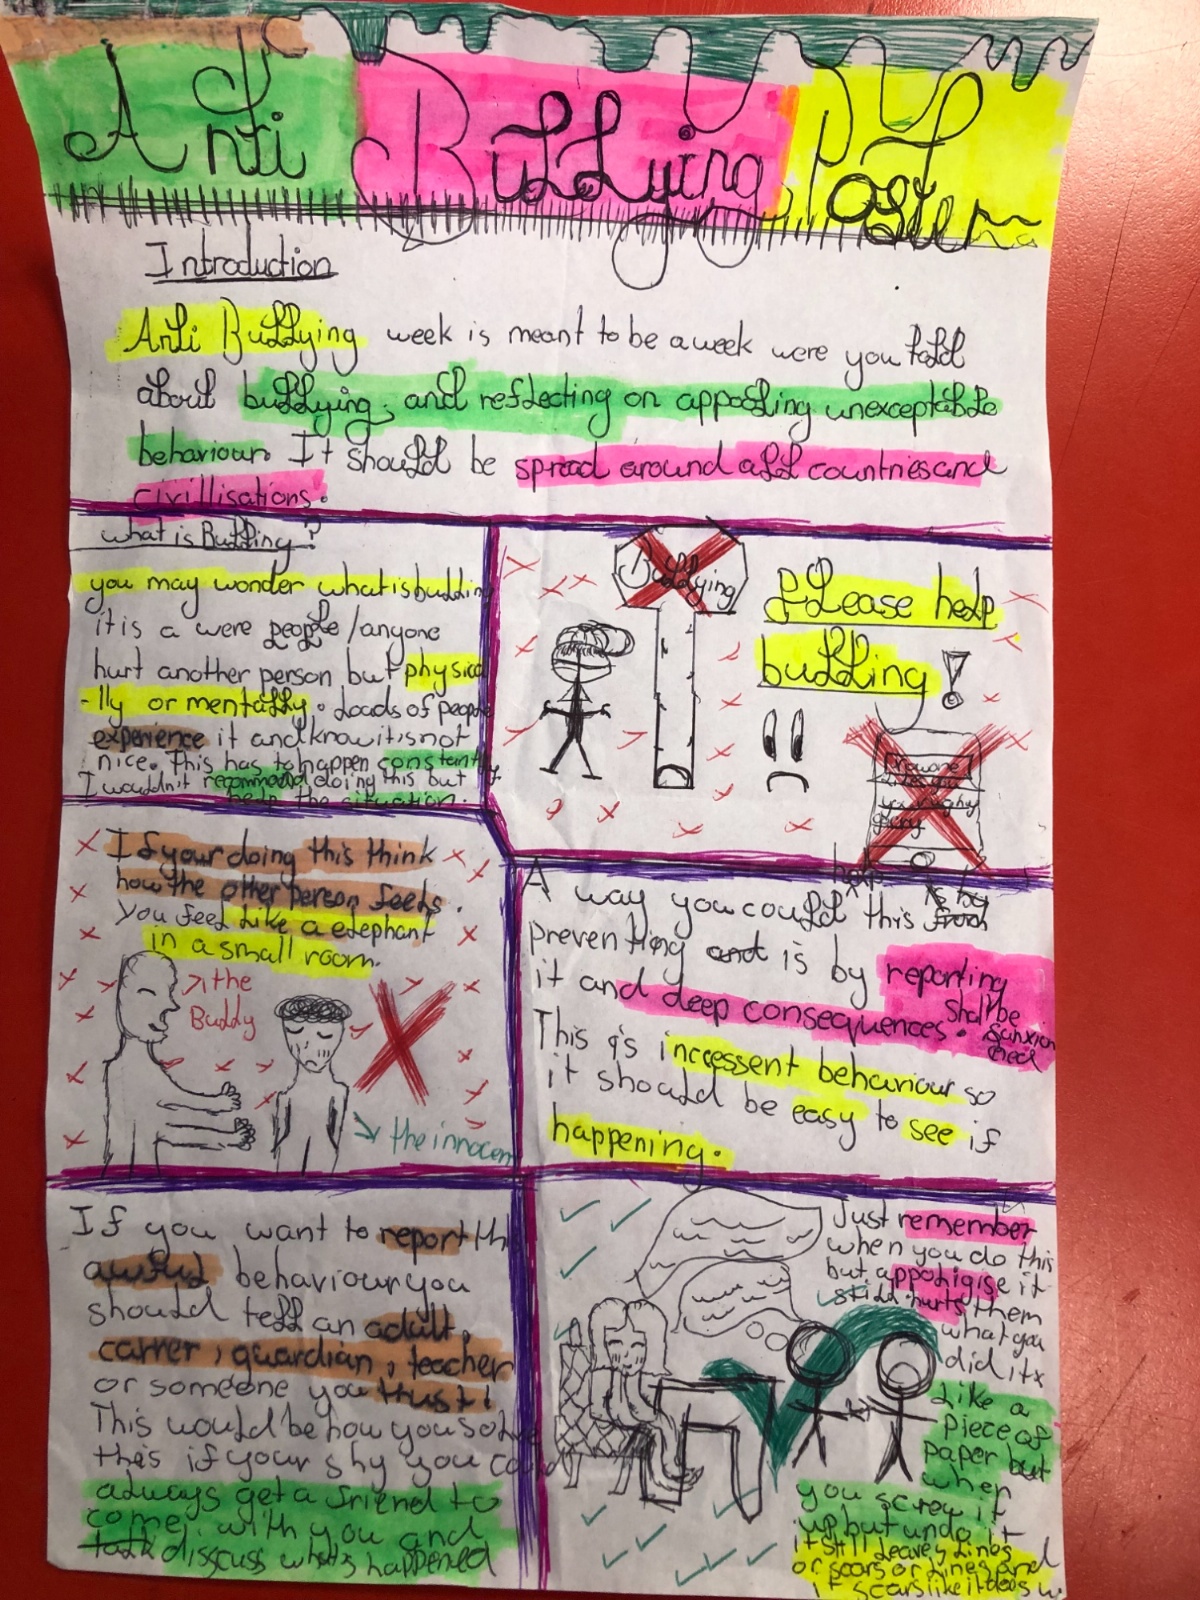 Anti Bullying Poster
Introduction
Anti Bullying week is meant to be a week were you told
about bullying, and reflecting on appalling unexceptable
behaviour. It should be spread around all countries and
civillisations.
what is Bulling?
you may wonder what is bullin
it is a were people/anyone
hurt another person but physica
-lly or mentally. Loads of people
experience it and know it is not
nice. This has to happen constantly.
I wouldn't recommend doing this but
help the situation.
Bullying
Please help
bulling!
If your doing this think
how the other person feels.
You feel like a elephant
in a small room.
the
Bully
the innocen
A way you could help this is by
preventing is by reporting
it and deep consequences. Shall be
This is incessent behaviour so
it should be easy to see if
happening.
If you want to report this
awful behaviour you
should tell an adult,
carrer, guardian, teacher
or someone you trust!
This would be how you solve
this if your shy you could
always get a friend to
come with you and
talk disscuss whats happened
Just remember
when you do this
but appoligise it
still hurts them
what you
did itx
Like a
piece of
paper but
when
you screw it
up but undo it
it still leaves lines
or scars or lines and
it scars like it does